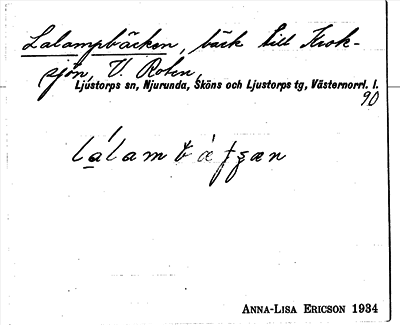 Lalampbäcken, bäck till Krok-
sjön, V. Roten,
Ljustorps sn, Njurunda, Sköns och Ljustorps tg, Västernorrl. l.
90
ANNA-LISA ERICSON 1934